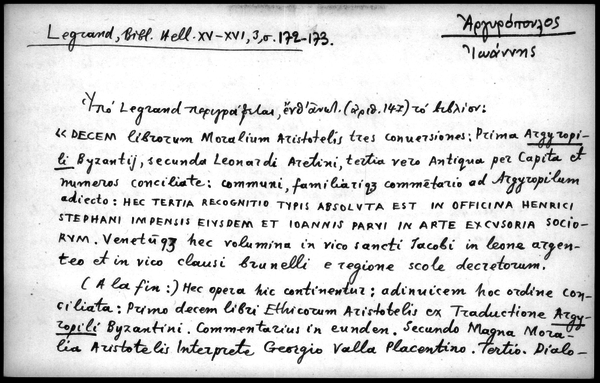 Legrand, Bibl. Hell. XV-XVI, 3, σ. 172-173.
Ἀργυρόπουλος
Ἰωάννης
Ὑπό Legrand περιγράφεται, ἔνθ' ἀνωτ. (ἀριθ. 142) τό βιβλίον:
« DECEM librorum Moralium Aristotelis tres conuersiones: Prima Argyropi-
li Byzantij, secunda Leonardi Aretini, tertia vero Antiqua per Capita et
numeros conciliate: communi, familiariqʒ commētario ad Argyropilum
adiecto: HEC TERTIA RECOGNITIO TYPIS ABSOLVTA EST IN OFFICINA HENRICI
STEPHANI IMPENSIS EIVSDEM ET IOANNIS PARVI IN ARTE EXCVSORIA SOCIO-
RVM. Venetūqʒ hec volumina in vico sancti Iacobi in leone argen-
teo et in vico clausi brunelli e regione scole decretorum.
(A la fin:) Hec opera hic continentur: adinuicem hoc ordine con-
ciliata: Primo decem libri Ethicorum Aristotelis ex Traductione Argy-
ropili Byzantini. Commentarius in eunden. Secundo Magna Mora-
lia Aristotelis Interprete Georgio Valla Placentino. Tertio. Dialo-